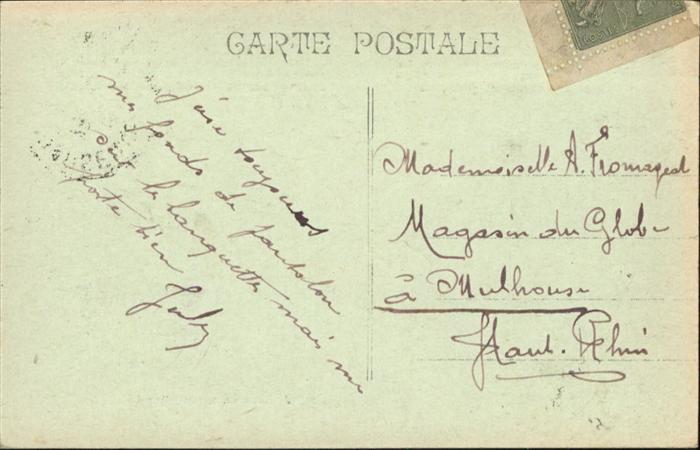 CARTE POSTALE
J'use toujours
mes fonds de pantalon
sur les banquettes mais me
porte bien
Mademoiselle A. Fromageat
Magasin du Globe
à Mulhouse
Haut-Rhin